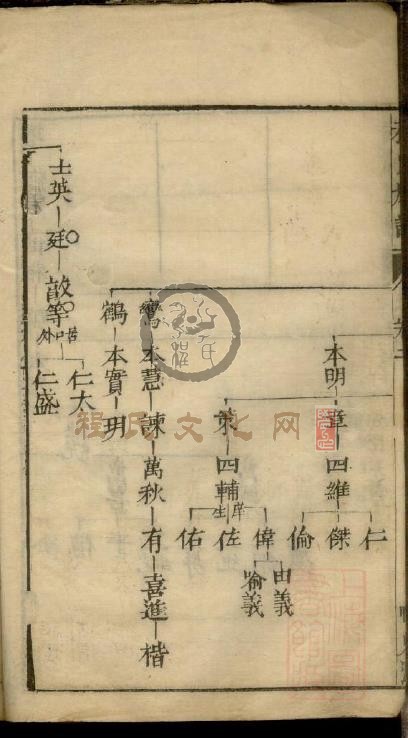 本明
章
四維
仁
傑
倫
策
四輔
庠生
偉
佐
佑
由義
喻義
鸞
本慧
諫
萬秋
有
喜進
楷
鶴
本實
玥
士英
廷
敔等
仁太
仁盛
程氏文化网